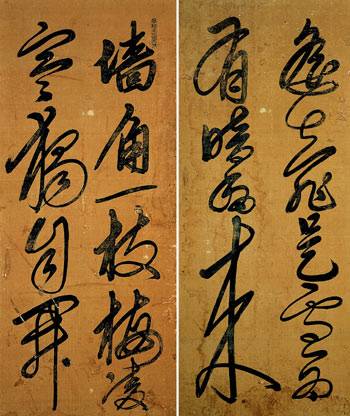 墙角一枝梅凌
寒獨自開
遙知是雪為
有暗香來